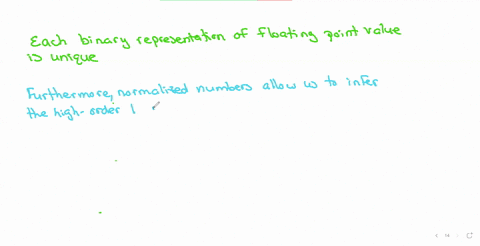 Each binary representation of floating point value
is unique
Furthermore, normalized numbers allow us to infer
the high-order 1